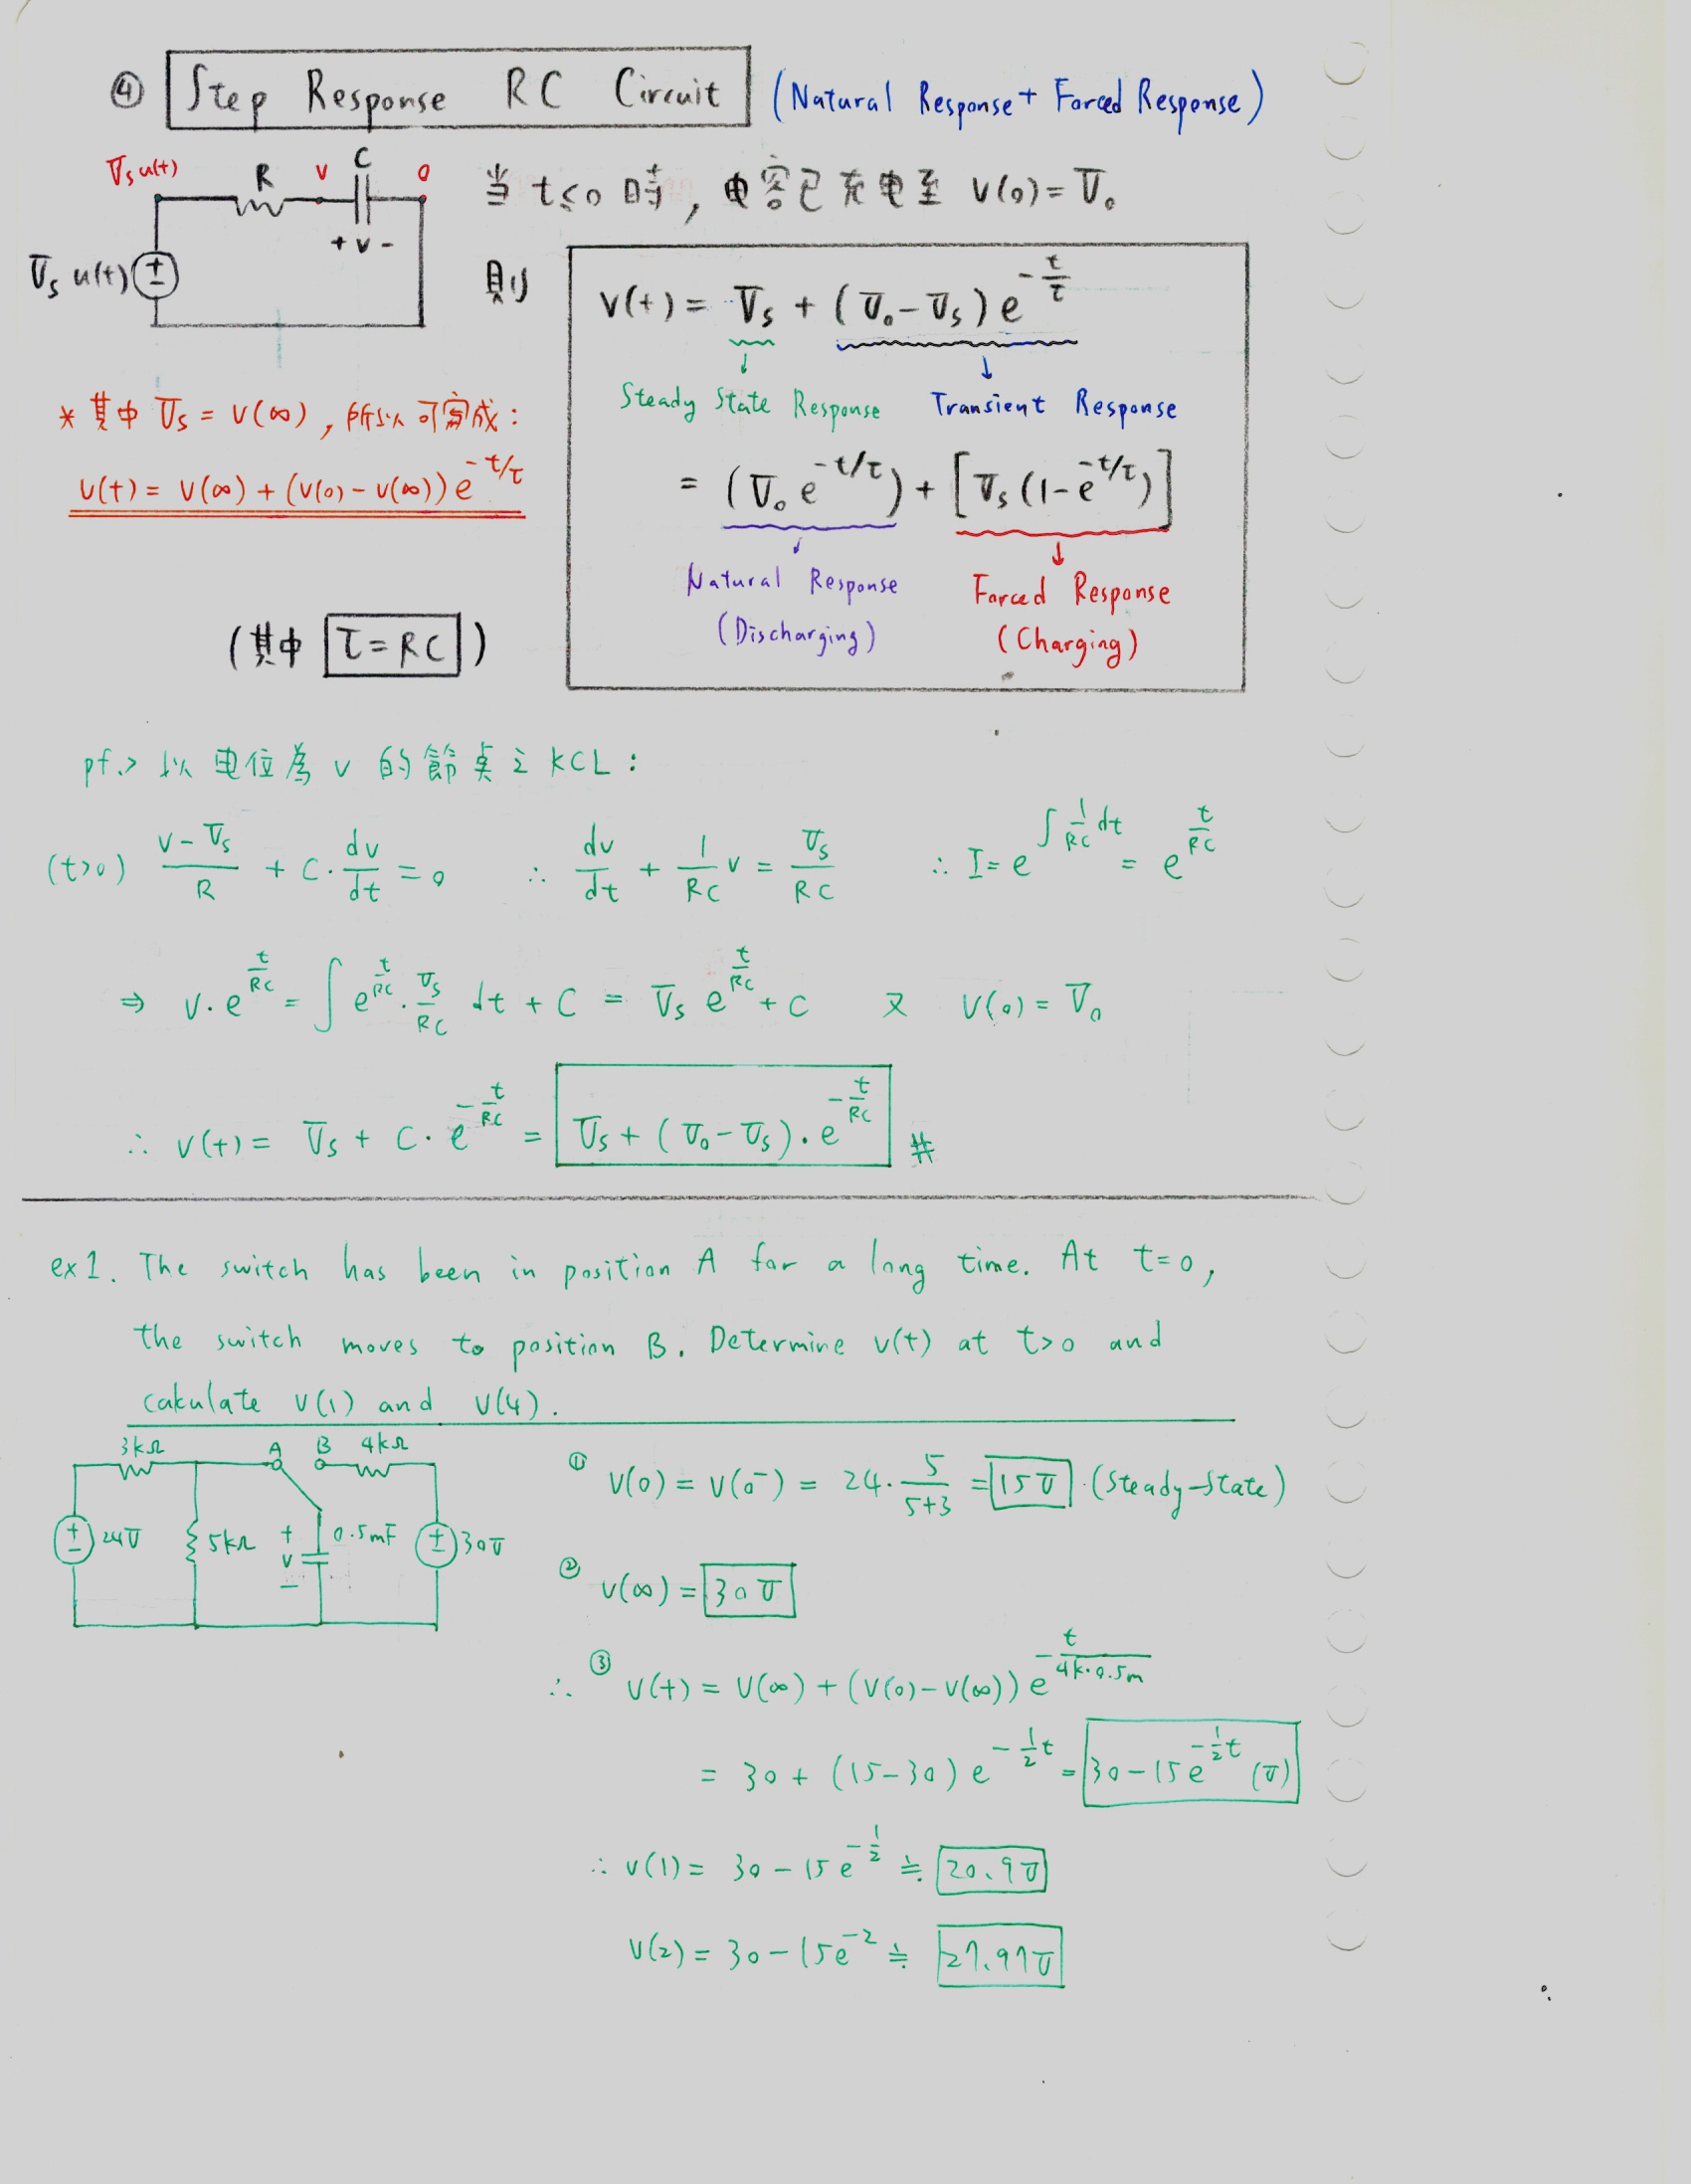 ④ Step Response RC Circuit (Natural Response + Forced Response)
Vs u(t) R v C 0
+ v -
Vs u(t)
當 t≤0 時, 電容已充電至 v(0) = V₀
則 v(t) = Vs + (V₀ - Vs) e^(-t/τ)
Steady State Response Transient Response
= (V₀ e^(-t/τ)) + [Vs (1 - e^(-t/τ))]
Natural Response (Discharging)
Forced Response (Charging)
* 其中 Vs = v(∞), 所以可寫成:
v(t) = v(∞) + (v(0) - v(∞)) e^(-t/τ)
(其中 τ = RC)
pf.> 以電位為 v 的節點之 KCL:
(t>0) (v - Vs)/R + C · dv/dt = 0 ∴ dv/dt + 1/RC v = Vs/RC ∴ I = e^(∫ 1/RC dt) = e^(t/RC)
⇒ v · e^(t/RC) = ∫ e^(t/RC) · Vs/RC dt + C = Vs e^(t/RC) + C 又 v(0) = V₀
∴ v(t) = Vs + C · e^(-t/RC) = Vs + (V₀ - Vs) · e^(-t/RC) #
ex1. The switch has been in position A for a long time. At t=0,
the switch moves to position B. Determine v(t) at t>0 and
calculate v(1) and v(4).
3kΩ A B 4kΩ
24V 5kΩ + v - 0.5mF 30V
① v(0) = v(0⁻) = 24 · 5/(5+3) = 15V (Steady-State)
② v(∞) = 30V
∴ ③ v(t) = v(∞) + (v(0) - v(∞)) e^(-t/(4k·0.5m))
= 30 + (15-30) e^(-1/2 t) = 30 - 15e^(-1/2 t) (V)
∴ v(1) = 30 - 15 e^(-1/2) ≒ 20.9V
v(2) = 30 - 15e^(-2) ≒ 27.97V